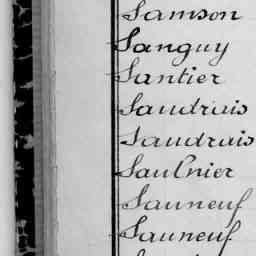 Samson
Sanguy
Santier
Saudrais
Saudrais
Saulnier
Sauneuf
Sauneuf